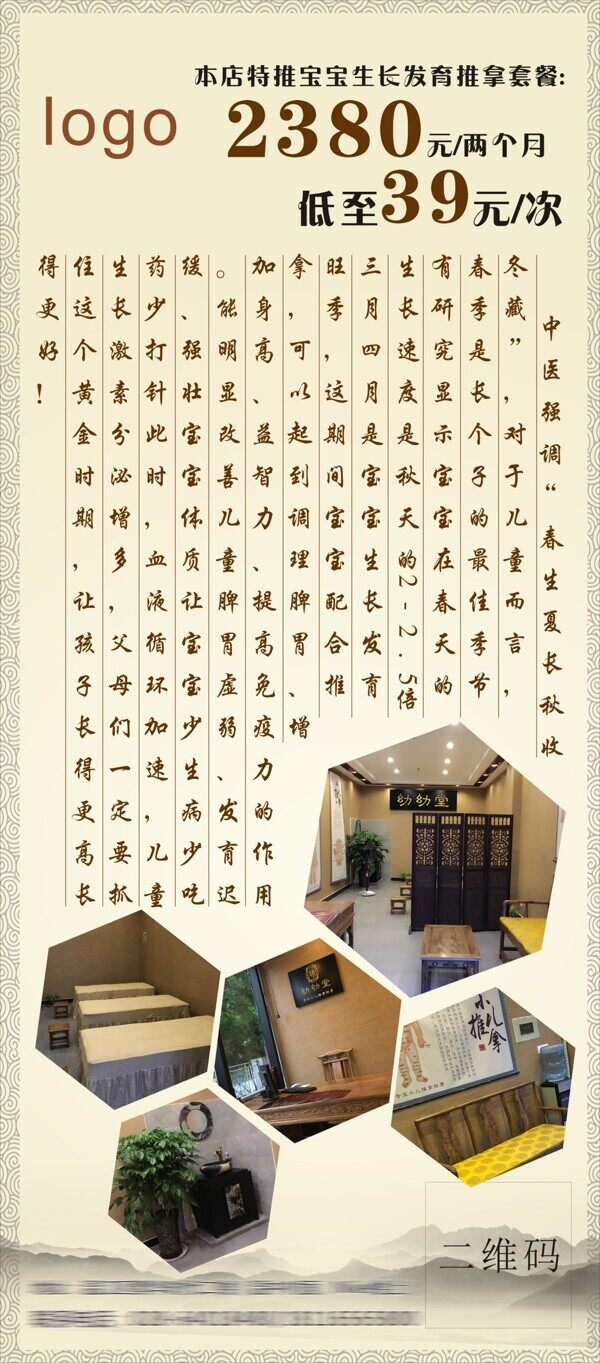 logo
本店特推宝宝生长发育推拿套餐:
2380元/两个月
低至39元/次
中医强调“春生夏长秋收
冬藏”，对于儿童而言，
春季是长个子的最佳季节
有研究显示宝宝在春天的
生长速度是秋天的2-2.5倍
三月四月是宝宝生长发育
旺季，这期间宝宝配合推
拿，可以起到调理脾胃、增
加身高、益智力、提高免疫力的作用
。能明显改善儿童脾胃虚弱、发育迟
缓、强壮宝宝体质让宝宝少生病少吃
药少打针此时，血液循环加速，儿童
生长激素分泌增多，父母们一定要抓
住这个黄金时期，让孩子长得更高长
得更好！
幼幼堂
幼幼堂
小儿推拿
二维码